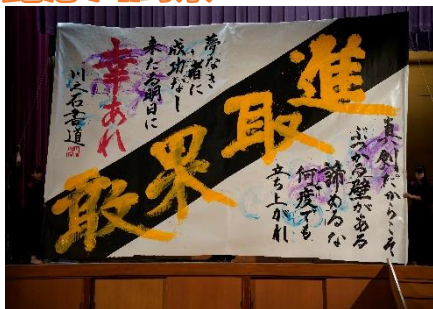 真剣だからこそ
ぶつかる壁がある
諦めるな
何度でも
立ち上がれ
進取果敢
夢なき
者に
成功なし
来たる明日に
幸あれ
川之石書道